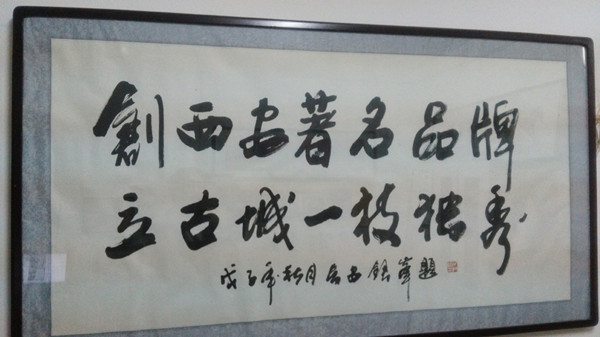 創西安著名品牌
立古城一枝独秀
戊子年秋月